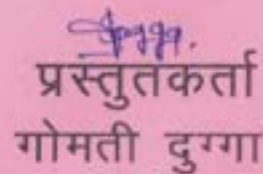 प्रस्तुतकर्ता
गोमती दुग्गा